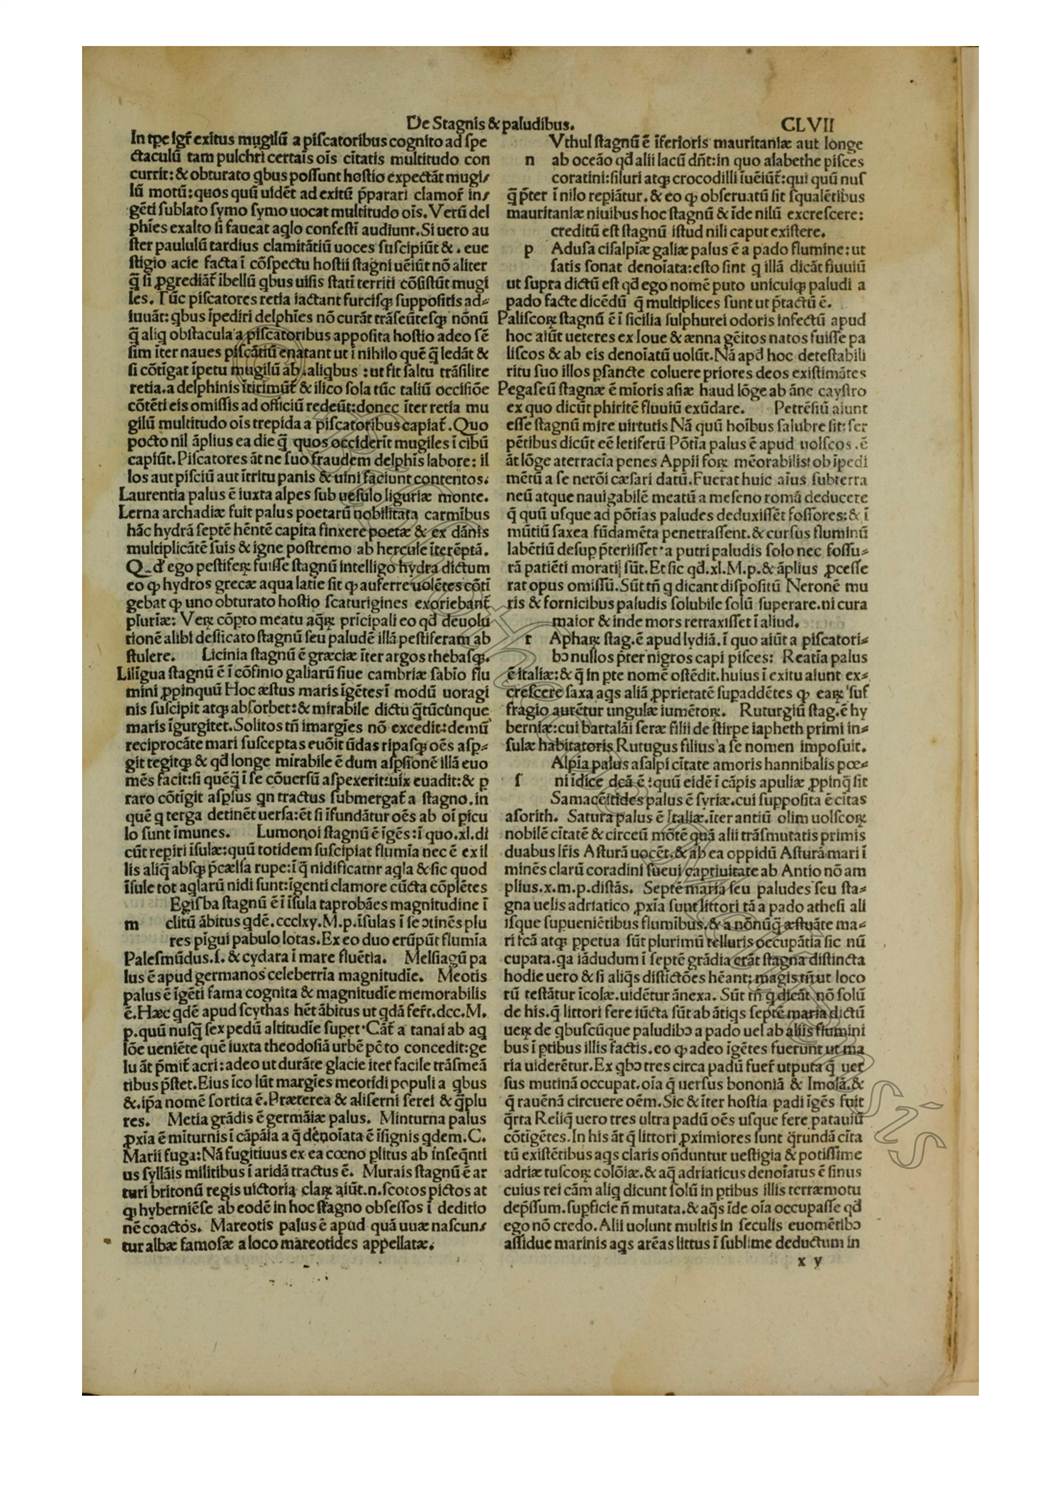 De Stagnis & paludibus. CLVII
In tp̄e igr̄ exitus mugilū a piſcatoribus cognito ad ſpe
ctaculū tam pulchri certaīs oīs cītatis multitudo con
currit: & obturato q̱bus poſſunt hoſtio expectāt mugi/
lū motū: quos quū uidēt ad exitū p̄parari clamor̄ in/
gēti ſublato ſymo ſymo uocat multitudo oīs. Verū del
phīes exalto ſi faueat aq̱lo confeſtī audiunt. Si uero au
ſter paululū tardius clamitātiū uoces ſuſcipiūt & . eue
ſtigio acie facta ī cōſpectu hoſtii ſtagni ueīūt nō aliter
q̄ ſi ꝓgrediāt̄ ībellū q̱bus uiſis ſtatī territi cōſiſtūt mugi
les. Tūc piſcatores retia iactant furciſqꝫ ſuppoſitis ad-
iuuāt: q̱bus īpediri delphīes nō curāt trāſeūteſqꝫ nōnū
q̄ aliq̱ obſtacula a piſcatoribus appoſita hoſtio adeo ſē
ſim īter naues piſcātiū enatant ut ī nihilo quē q̄ ledāt &
ſi cōtigat īpetu mugilū ab. aliq̱bus : ut fit ſaltu trāſilire
retia. a delphinis īterimūt̄ & ilico ſola tūc taliū occiſiōe
cōtēti eis omiſſis ad officiū redeūt: donec īter retia mu
gilū multitudo oīs trepida a piſcatoribus capiat̄. Quo
pocto nil āplius ea die q̄ quos occiderīt mugiles ī cibū
capiūt. Piſcatores āt ne ſuo fraudem delphīs labore: il
los aut piſciū aut ītritu panis & uīni faciunt contentos.
Laurentia palus ē iuxta alpes ſub ueſulo liguriæ monte.
Lerna archadiæ fuit palus poetarū nobilitata carmībus
hāc hydrā ſeptē hēntē capita finxere poetæ & ex dānis
multiplicātē ſuis & igne poſtremo ab hercule īterēptā.
Q_d̄ ego peſtiferꝝ fuiſſe ſtagnū intelligo hydra dictum
eo ꝙ hydros grecæ aqua latie ſit ꝙ auferre uolētes cōti
gebat ꝙ uno obturato hoſtio ſcaturigines exoriebant̄
pluriæ: Verꝝ cōpto meatu aq̄rꝝ pricipali eo qd dēuolu
tionē alibi deſiccato ſtagnū ſeu paludē illā peſtiferam ab
ſtulere. Licinia ſtagnū ē græciæ īter argos thebaſqꝫ.
Liligua ſtagnū ē ī cōfinio galiarū ſiue cambriæ ſabīo flu
mini ꝓpinquū Hoc æſtus maris īgētes ī modū uoragi
nis ſuſcipit atqꝫ abſorbet: & mirabile dictu q̄tūcūnque
maris īgurgitet. Solitos tn̄ imargīes nō excedit: demū
reciprocāte mari ſuſceptas euōit ūdas ripaſqꝫ oēs aſp-
git tegitqꝫ & qd longe mirabile ē dum aſpſionē illā euo
mēs facit: ſi quēq̄ ī ſe cōuerſū aſpexerit: uix euadit: & p
raro cōtīgit aſpſus q̱n tractus ſubmergat̄ a ſtagno. in
quē q̱ terga detinēt uerſa: ēt ſi īfundāt̄ oēs ab oī picu
lo ſunt īmunes. Lumonoi ſtagnū ē īgēs: ī quo. xl. di
cūt repiri īſulæ: quū totidem ſuſcipiat flumīa nec ē ex il
lis aliq̄ abſqꝫ p̄cælſa rupe: ī q̄ nidificatnr aq̱la & ſic quod
īſule tot aq̱larū nidi ſunt: īgenti clamore cūcta cōplētes
Egiſba ſtagnū ē ī īſula taprobāes magnitudine ī
m clitū ābitus qdē. ccclxy. M. p. īſulas ī ſe ↄtinēs plu
res pīgui pabulo lotas. Ex eo duo erūpūt flumīa
Paleſmūdus. ſ. & cydara ī mare fluētia. Melſiagū pa
lus ē apud germanos celeberrīa magnitudīe. Meotis
palus ē īgēti fama cognita & magnitudīe memorabilis
ē. Hæc q̱dē apud ſcythas hēt ābitus ut q̱dā fert̄. dcc. M.
p. quū nuſq̄ ſex pedū altitudīe ſupet. Cāt̄ a tanai ab aq
lōe ueniēte quē iuxta theodoſiā urbē pēto concedit: ge
lu āt p̄mit̄ acri: adeo ut durāte glacie iter facile trāſmeā
tibus p̄ſtet. Eius īco lūt margīes meotidi populi a q̱bus
&. ip̄a nomē ſortita ē. Præterea & aliſerni ſerei & q̄plu
res. Metia grādis ē germāiæ palus. Minturna palus
ꝓxīa ē mīturnis ī cāpāia a q̄ dēnoīata ē īſignis q̱dem. C.
Marii fuga: Nā fugitiuus ex ea cœno plitus ab inſeq̄nti
us ſyllāis militibus ī aridā tractus ē. Murais ſtagnū ē ar
turi britonū regis uictoria clarꝝ aiūt. n. ſcotos pictos at
qꝫ hyberniēſe ab eodē in hoc ſtagno obſeſſos ī deditio
nē coactos. Mareotis palus ē apud quā uuæ naſcun/
tur albæ famoſæ a loco mareotides appellatæ.
Vthul ſtagnū ē īferioris mauritaniæ aut longe
n ab oceāo qd alii lacū dn̄t: in quo alabethe piſces
coratini: ſiluri atqꝫ crocodilli īueīūt̄: qui quū nuſ
q̄ p̄ter ī nilo repiātur. & eo ꝙ obſeruatū ſit ſqualētibus
mauritaniæ niuibus hoc ſtagnū & īde nilū excreſcere:
creditū eſt ſtagnū iſtud nili caput exiſtere.
p Aduſa ciſalpiæ galiæ palus ē a pado flumine: ut
ſatis ſonat denoīata: eſto ſint q̱ illā dicāt fluuiū
ut ſupra dictū eſt qd ego nomē puto unicuiqꝫ paludi a
pado facte dicēdū q̄ multiplices ſunt ut p̄tactū ē.
Paliſcorꝝ ſtagnū ē ī ſicilia ſulphurei odoris infectū apud
hoc aiūt ueteres ex Ioue & ænna gēitos natos fuiſſe pa
liſcos & ab eis denoīatū uolūt. Nā apd hoc deteſtabili
ritu ſuo illos pſancte coluere priores deos exiſtimātes
Pegaſeū ſtagnæ ē mīoris aſiæ haud lōge ab āne cayſtro
ex quo dicūt phiritē fluuiū exūdare. Petrēſiū aiunt
eſſe ſtagnū mire uirtutis Nā quū hoībus ſalubre ſit: ſer
pētibus dicūt eē letiferū Pōtīa palus ē apud uolſcos . ē
āt lōge aterracīa penes Appii forꝝ mēorabilis: ob īpedi
mētū a ſe nerōi cæſari datū. Fuerat huic aīus ſubterra
neū atque nauigabilē meatū a meſeno romā deducere
q̄ quū uſque ad pōtīas paludes deduxiſſēt foſſores: & ī
mūtiū ſaxea fūdamēta penetraſſent. & curſus fluminū
labētiū deſup p̄teriiſſet a putri paludis ſolo nec foſſu-
tā patiēti morati ſūt. Et ſic qd. xl. M. p. & āplius ꝓceſſe
rat opus omiſſū. Sūt tn̄ q̱ dicant diſpoſitū Neronē mu
ris & fornicibus paludis ſolubile ſolū ſuperare. ni cura
maior & inde mors retraxiſſet ī aliud.
r Apharꝝ ſtag. ē apud lydiā. ī quo aiūt a piſcatori-
bꝰ nullos p̄ter nigros capi piſces: Reatīa palus
ē italiæ: & q̄ in pte nomē oſtēdit. huius ī exitu aiunt ex-
creſcere ſaxa aq̱s aliā ꝓprietatē ſupaddētes ꝙ earꝝ ſuf
fragio aurētur ungulæ iumētorꝝ. Ruturgiū ſtag. ē hy
berniæ: cui bartalāi ſeræ filii de ſtirpe iapheth primi in-
ſulæ habitatoris Rutugus filius a ſe nomen impoſuit.
Alpīa palus aſalpi cītate amoris hannibalis pœ-
ſ ni īdice dcā ē : quū eidē ī cāpis apuliæ ꝓpinq̄ ſit
Samacētides palus ē ſyriæ. cui ſuppoſita ē cītas
aſorith. Satura palus ē Italiæ. īter antiū olim uolſcorꝝ
nobilē cītatē & circeū mōtē quā alii trāſmutatis primis
duabus lr̄is Aſturā uocēt. & ab ea oppidū Aſturā mari ī
minēs clarū coradini ſueui captiuitate ab Antio nō am
plius. x. m. p. diſtās. Septē maria ſeu paludes ſeu ſta-
gna uelis adriatico ꝓxīa ſunt littori tā a pado atheſi ali
iſque ſupueniētibus flumībus. & a nōnūq̄ æſtuāte ma-
ri fcā atqꝫ ppetua ſūt plurimū telluris occupātia ſic nū
cupata. q̱a iādudum ī ſeptē grādia erāt ſtagna diſtīncta
hodie uero & ſi aliq̱s diſtictōes hēant: magis tn̄ ut loco
rū teſtātur īcolæ. uidētur ānexa. Sūt tn̄ q̱ dicāt nō ſolū
de his. q̄ littori fere iūcta ſūt ab ātiq̱s ſeptē maria dictū
uerꝝ de q̱buſcūque paludibꝰ a pado uel ab aliis flumini
bus ī ptibus illis factis. eo ꝙ adeo īgētes fuerunt ut ma
ria uiderētur. Ex q̱bꝰ tres circa padū fuer̄ utputa q̄ uer
ſus mutinā occupat. oīa q̄ uerſus bononiā & Imolā. &
q̄ rauēnā circuere oēm. Sic & īter hoſtia padi īgēs fuit
q̄rta Reliq̄ uero tres ultra padū oēs uſque fere patauiū
cōtīgētes. In his āt q̄ littori ꝓximiores ſunt q̄rundā cīta
tū exiſtētibus aq̱s claris oñduntur ueſtigia & potiſſime
adriæ tuſcorꝝ colōiæ. & aq̄ adriaticus denoīatus ē ſinus
cuius rei cām aliq̱ dicunt ſolū in ptibus illis terræmotu
dep̄ſſum. ſupficie n̄ mutata. & aq̱s īde oīa occupaſſe qd
ego nō credo. Alii uolunt multis in ſeculis euomētibꝰ
aſſidue marinis aq̱s arēas littus ī ſublime deductum in
x y